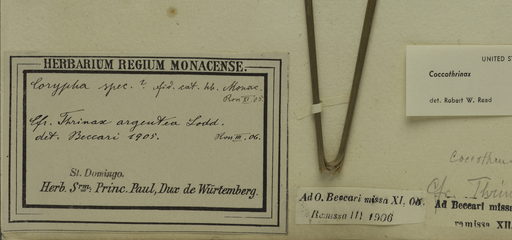 HERBARIUM REGIUM MONACENSE.
Corypha spec.? fid. cat. hb. Monac.
Ross XI. 05.
Cfr. Thrinax argentea Lodd.
det. Beccari 1905. Ross III. 06.
St. Domingo.
Herb. Srmi Princ. Paul, Dux de Würtemberg.
Ad O. Beccari missa XI. 05.
Remissa III 1906
UNITED S
Coccothrinax
det. Robert W. Read
Coccothrin
Cfr. Thrin
Ad Beccari missa
remissa XII.